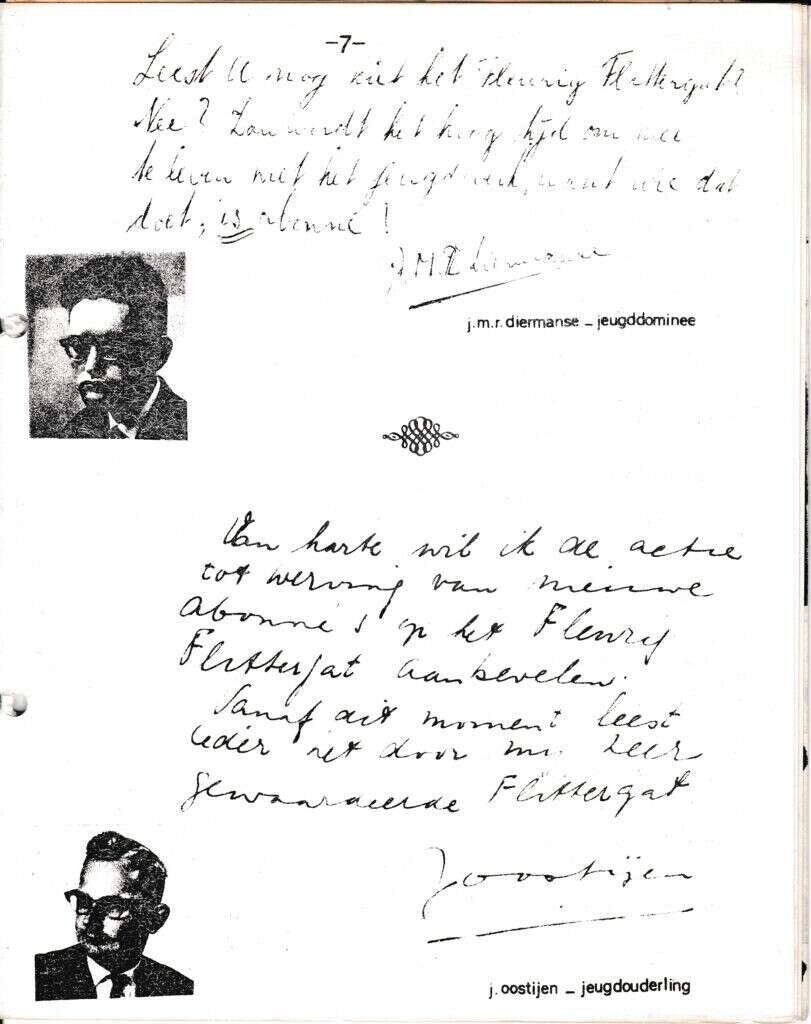 -7-
Leest U nog niet het Fleurig Flittergat?
Nee? Dan wordt het hoog tijd om mee
te leven met het jeugdwerk, want wie dat
doet, is abonné!
J.M.R. Diermanse
j.m.r. diermanse - jeugddominee
Van harte wil ik de actie
tot werving van nieuwe
abonné's op het Fleurig
Flittergat aanbevelen.
Vanaf dit moment leest
ieder het door mij zeer
gewaardeerde Flittergat
J Oostijen
j. oostijen - jeugdouderling